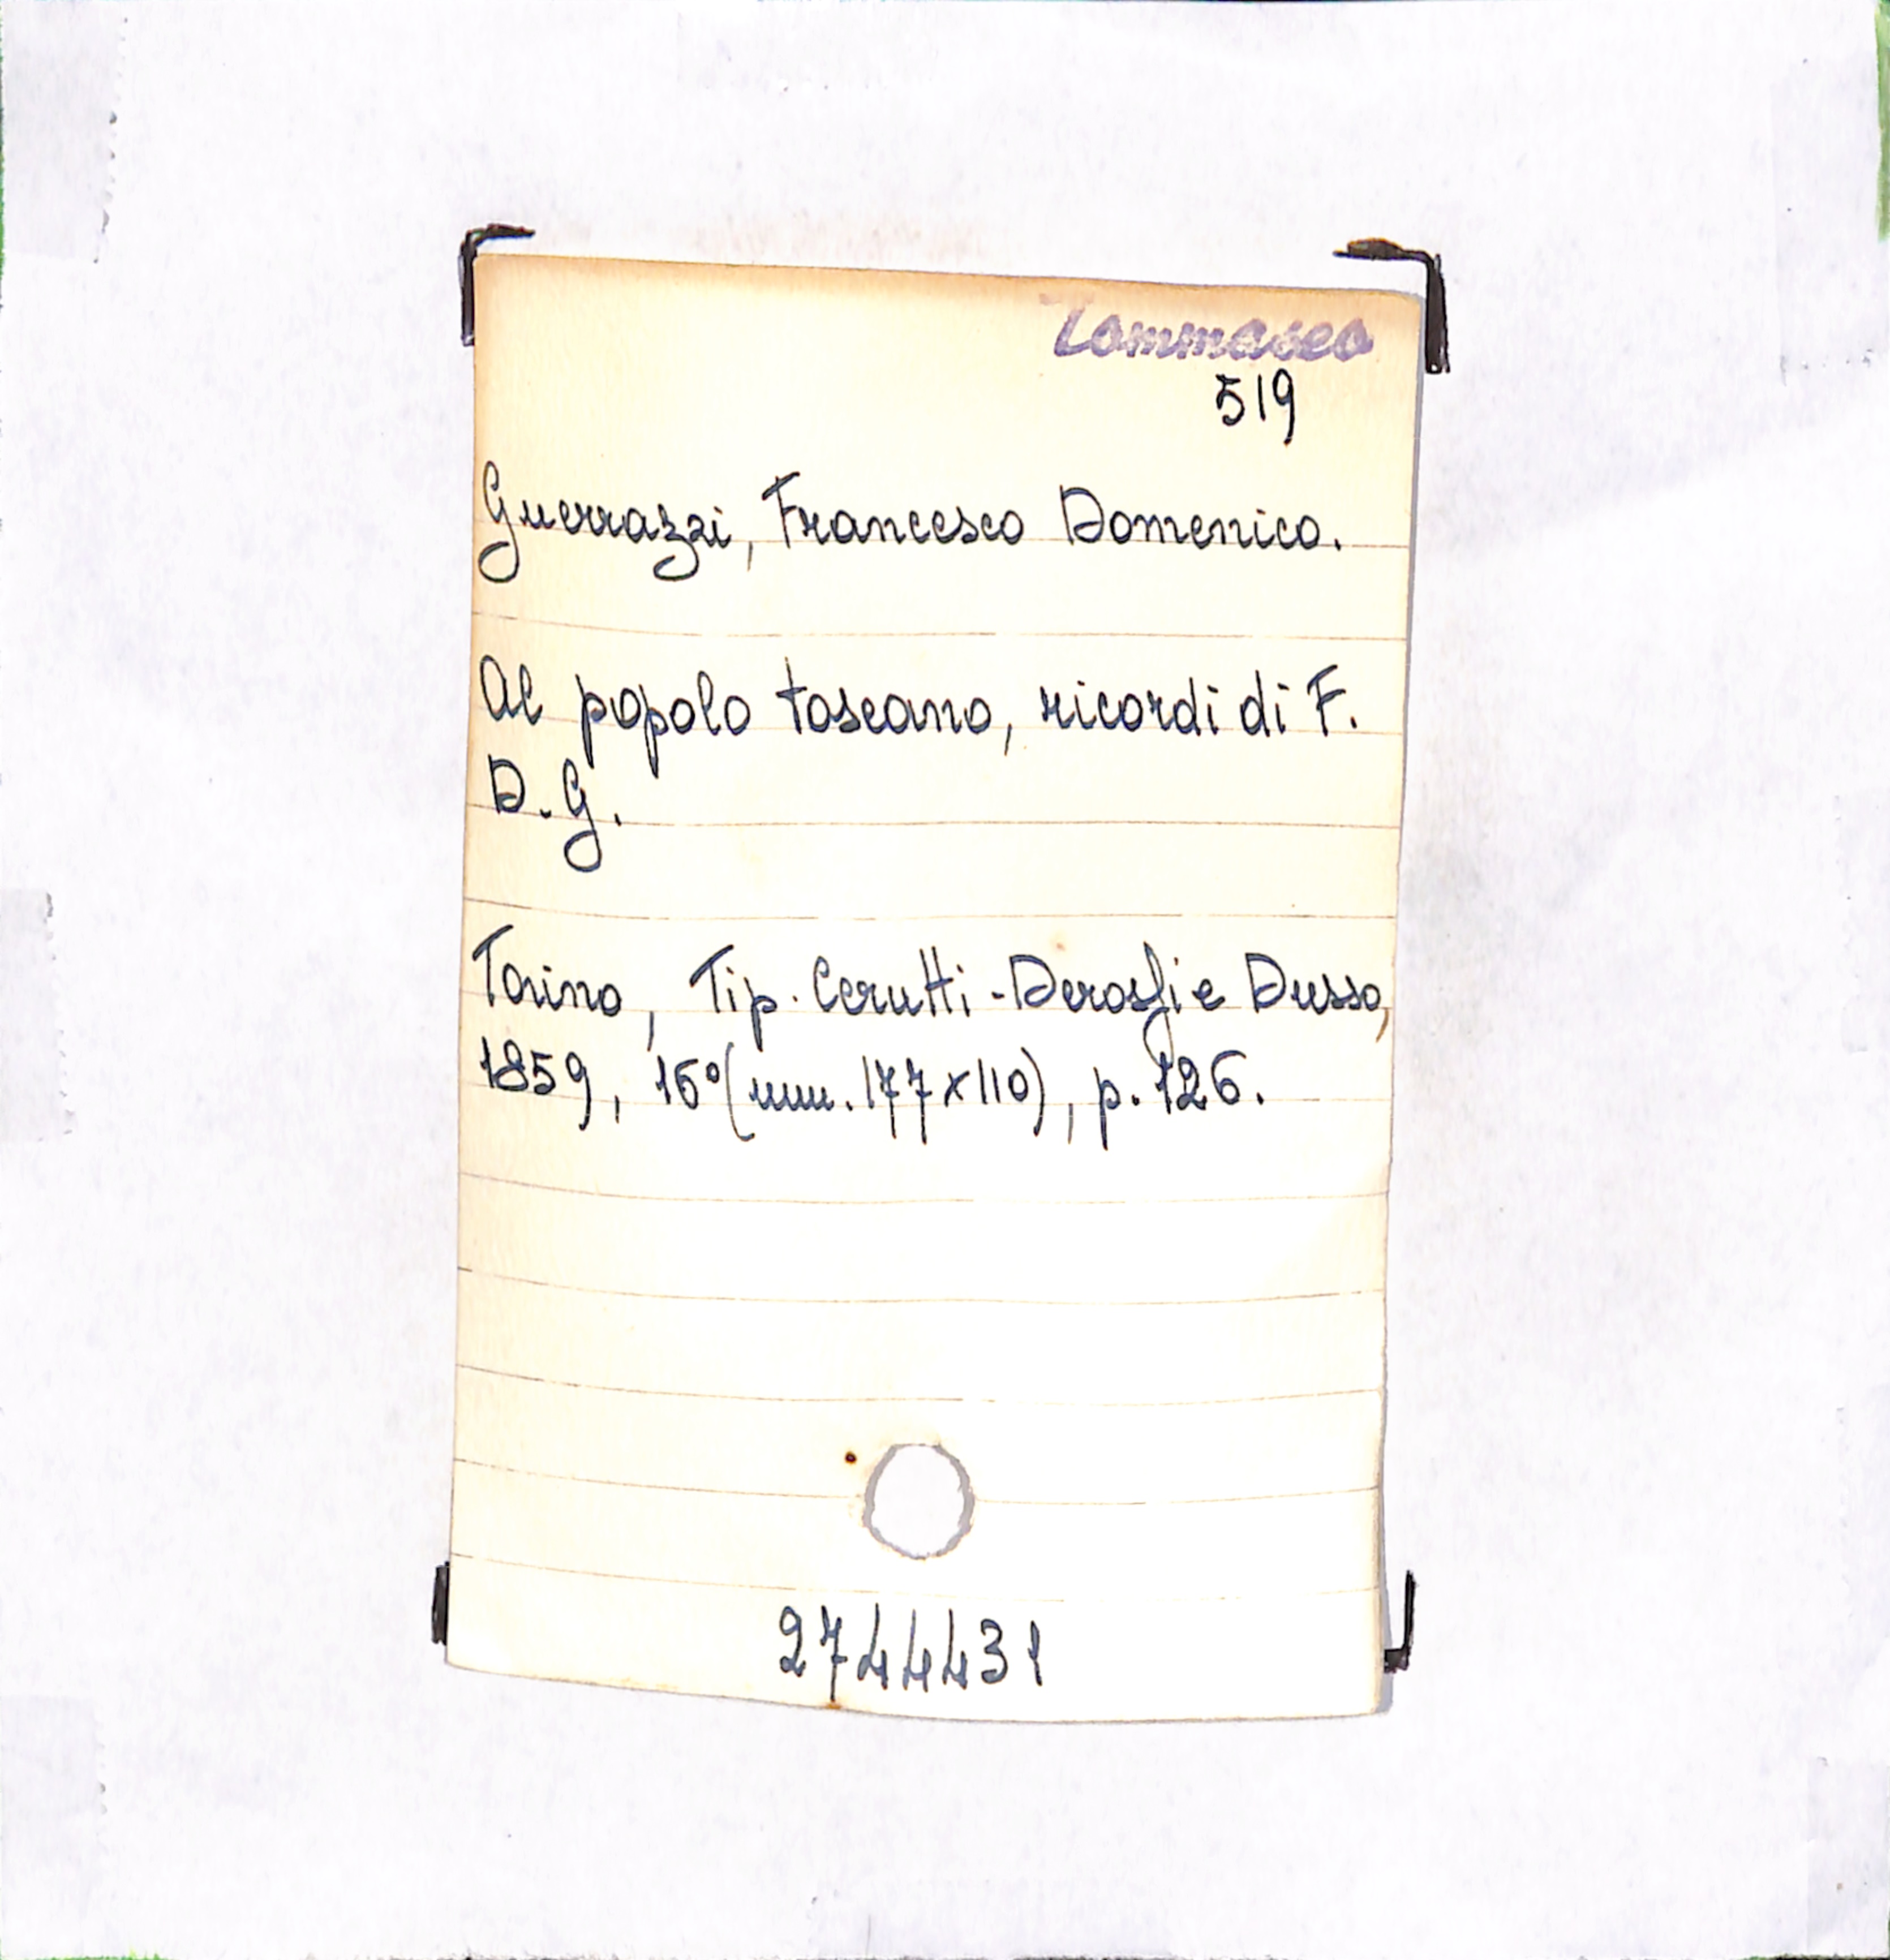 Tommaseo
519
Guerrazzi, Francesco Domenico.
Al popolo toscano, ricordi di F.
D. G.
Torino, Tip. Cerutti-Derossi e Dusso,
1859, 16º (mm. 177x110), p. 126.
2744431